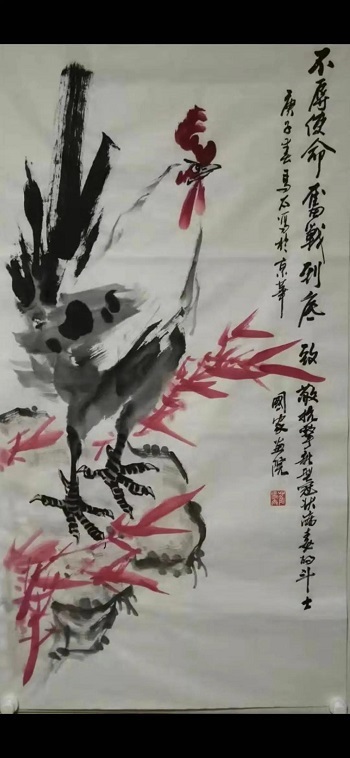 不辱使命奮戰到底 致敬抗擊新型冠狀病毒的斗士
庚子春馬石寫於京華
國家画院